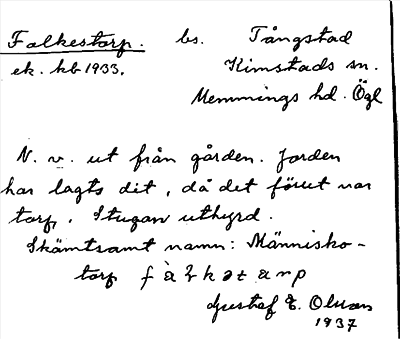 Falkestorp. bs. Tångstad
ek. kb 1933. Kimstads sn.
Memmings hd. Ögl
N. v. ut från gården. Jorden
har lagts dit, då det förut var
torp. Stugan uthyrd.
Skämtsamt namn: Människo-
torp fàλkətarp
Gustaf E. Olsson
1937